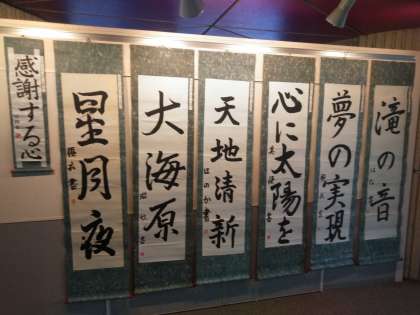 感謝する心
星月夜
大海原
天地清新
心に太陽を
夢の実現
滝の音